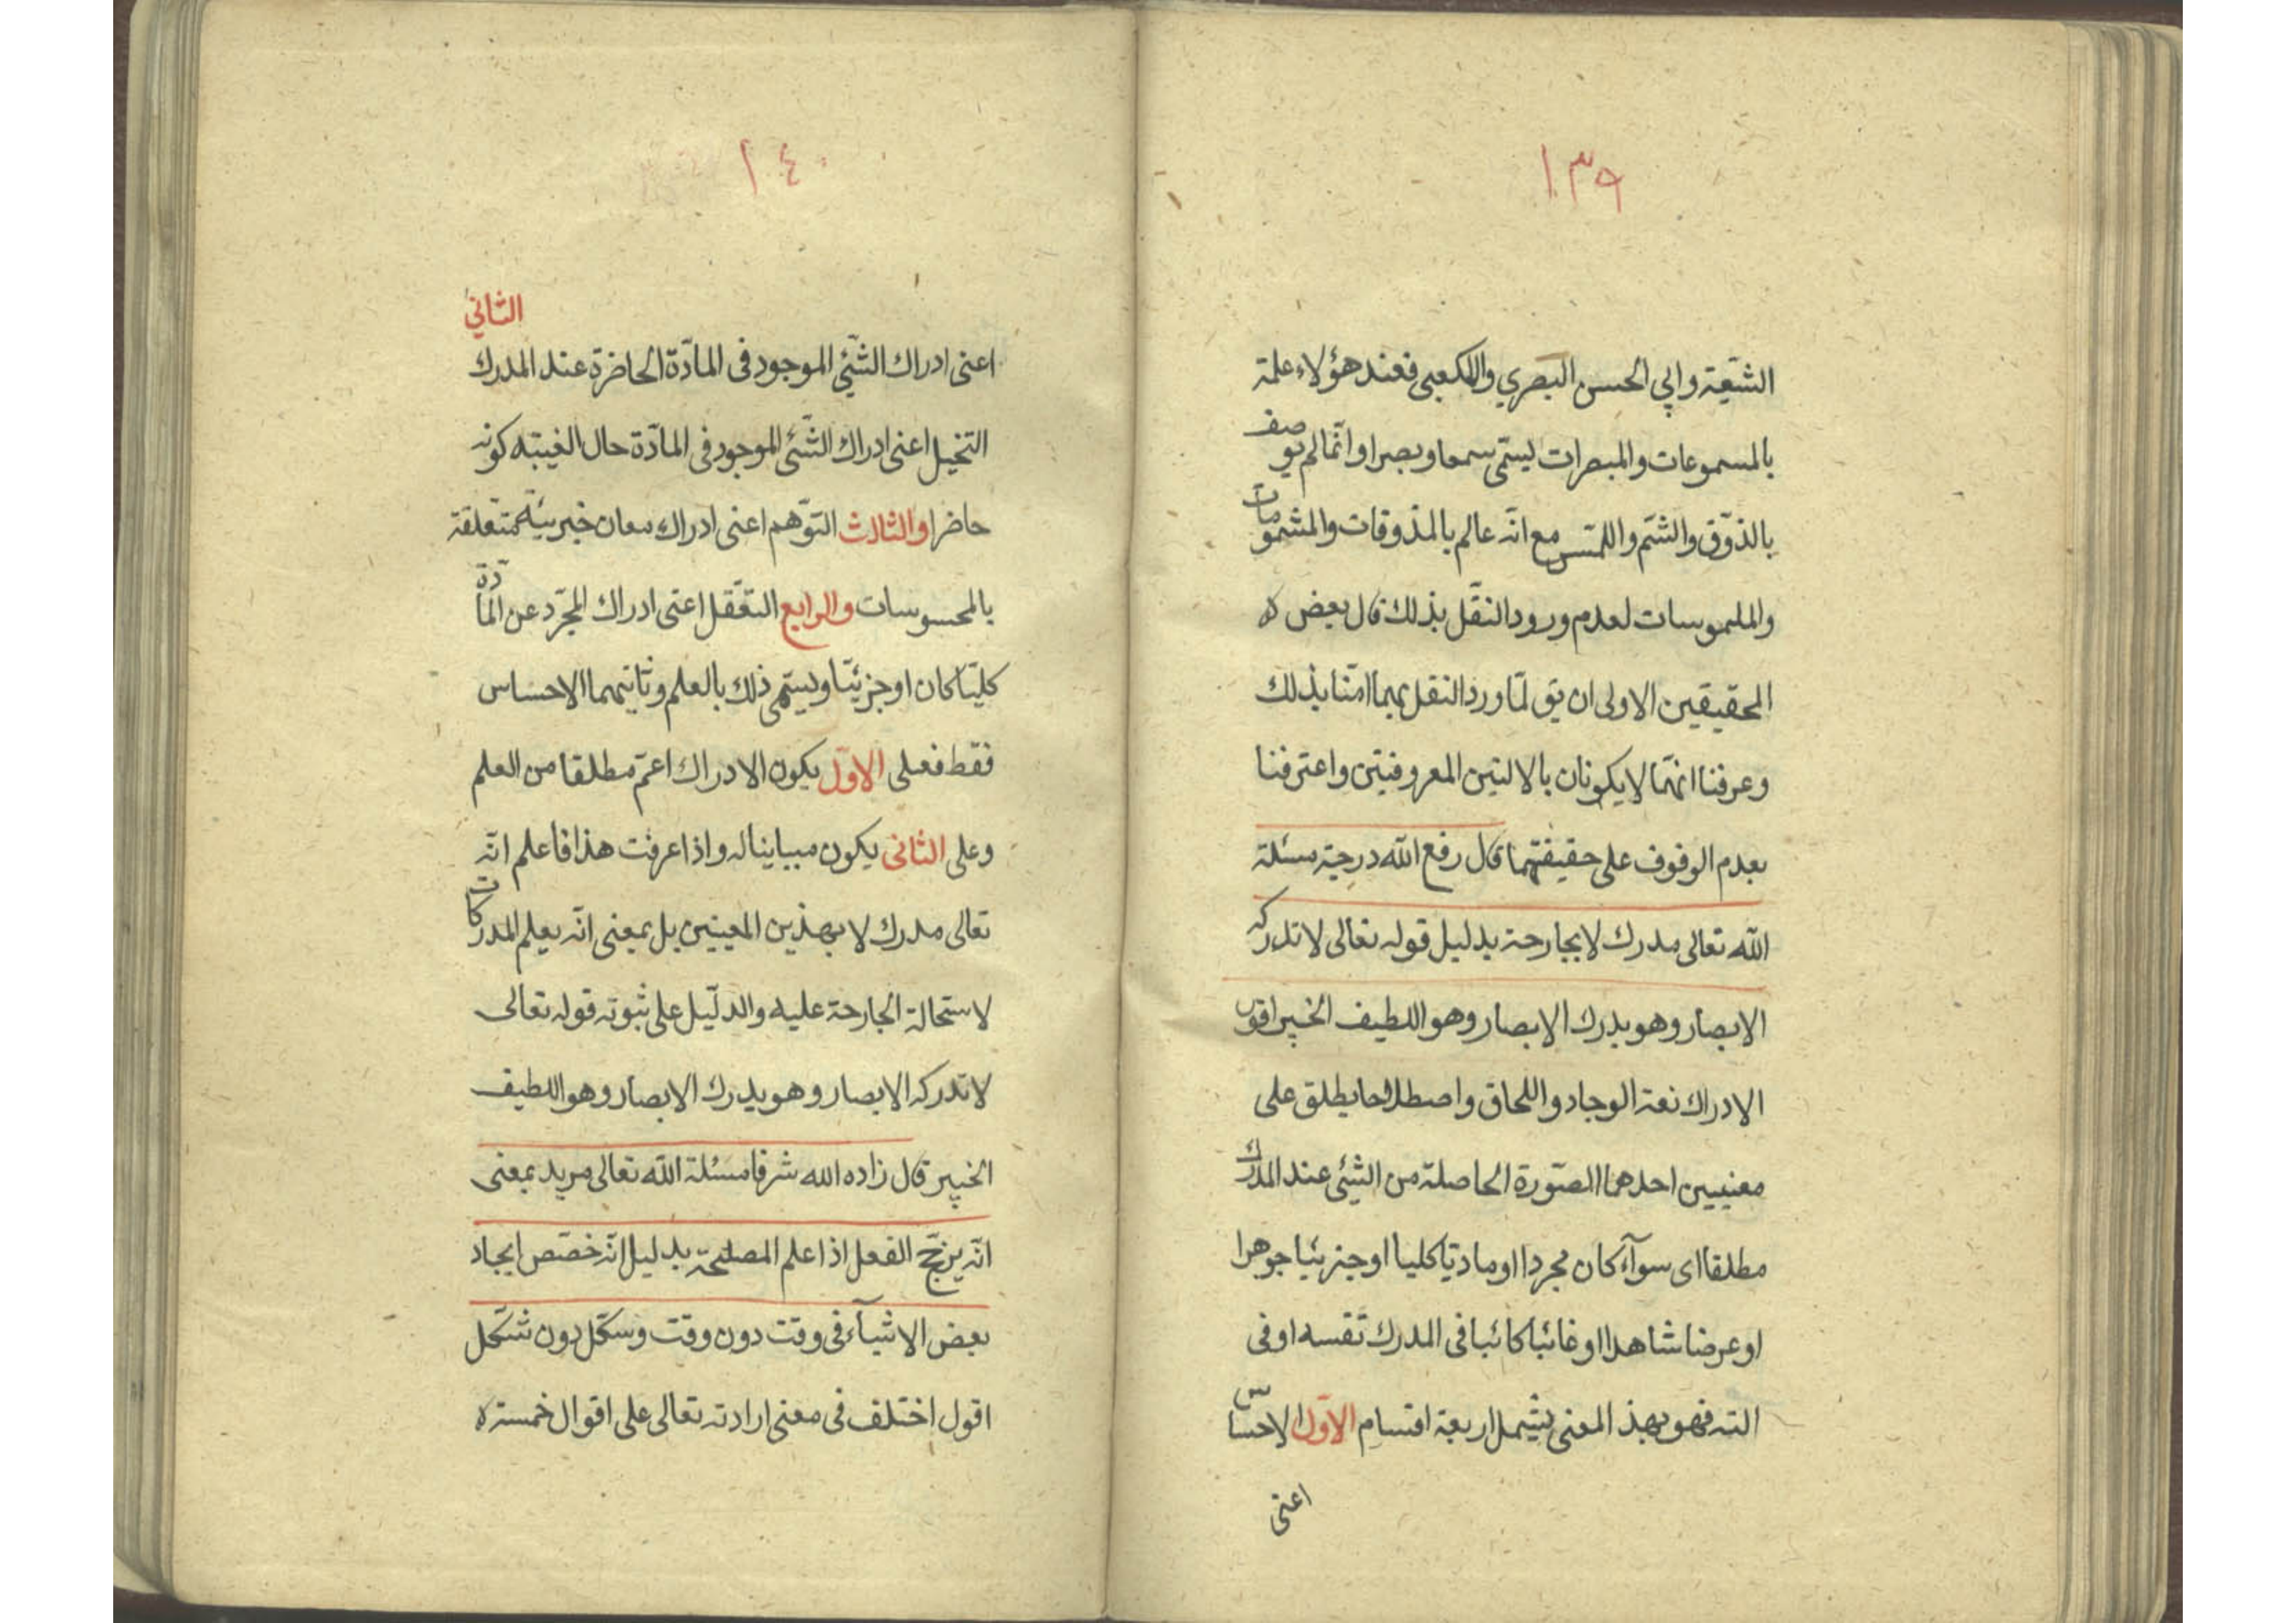 ١٣٩
الشيعة وابي الحسن البصري والكعبى فعند هؤلاء علمة
بالمسموعات والمبصرات يسمّى سمعا وبصرا وانّما لم يوصف
بالذّوق والشّم واللمّس مع انّه عالم بالمذوقات والمشمومات
والملموسات لعدم ورود النقّل بذلك قال بعض
المحقيقين الاولى ان يق لمّا ورد النقل بهما امنّا بذلك
وعرفنا انهّما لا يكونان بالالتين المعروفيتن واعترفنا
بعدم الوقوف على حقيقتهما قال رفع الله درجته مسئلة
الله تعالى مدرك لا بجارحة بدليل قوله تعالى لا تدركه
الابصار وهو يدرك الابصار وهو اللطيف الخبير اقول
الادراك نعة الوجاد واللحاق واصطلاحا يطلق على
معنيين احدهما الصّورة الحاصلة من الشيئ عند المدرك
مطلقا اى سوآء كان مجردا او مادتيا كليا او جزئيا جوهرا
او عرضا شاهدا او غائبا كائبا فى المدرك نفسه او فى
الته فهو بهذ المعنى يشمل اربعة اقسام الاوّل الاحساس
اعنى
١٤٠
اعنى ادراك الشّيئ الموجود فى المادّة الحاضرة عند المدرك الثانى
التخيل اعنى ادراك الشّيئ الموجود فى المادّة حال الغيبته كونه
حاضرا والثالث التوّهم اعنى ادراك معان خبريئة متعلقة
بالمحسوسات والرابع التعّقل اعنى ادراك المجرّد عن المادّة
كليّا كان او جزئيّا ويسمّى ذلك بالعلم وثانيهما الاحساس
فقط فعلى الاوّل يكون الادراك اعمّ مطلقا من العلم
وعلى الثانى يكون مبياينا له واذا عرفت هذا فاعلم انّه
تعالى مدرك لا بهذين المعنيين بل بمعنى انّه يعلم المدركات
لاستحالة الجارحة عليه والدلّيل على ثبوته قوله تعالى
لا تدركه الابصار وهو يدرك الابصار وهو اللطيف
الخبير قال زاده الله شرفا مسئلة الله تعالى مريد بمعنى
انّه يرجّح الفعل اذا علم المصلحّة بدليل انّه خصّص ايجاد
بعض الاشيآء فى وقت دون وقت وسكّل دون شكّل
اقول اختلف فى معنى ارادته تعالى على اقوال خمسته